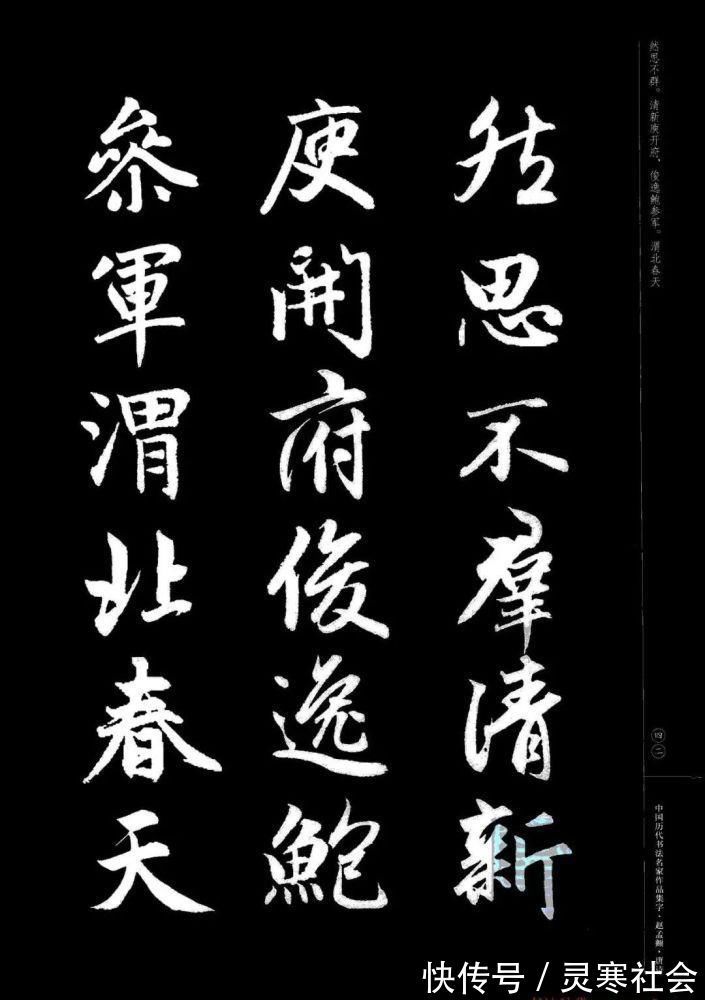 然思不群。清新庾开府，俊逸鲍参军。渭北春天
然思不羣清新
庾開府俊逸鮑
參軍渭北春天
四二
中国历代书法名家作品集字·赵孟頫·唐
快传号／灵寒社会